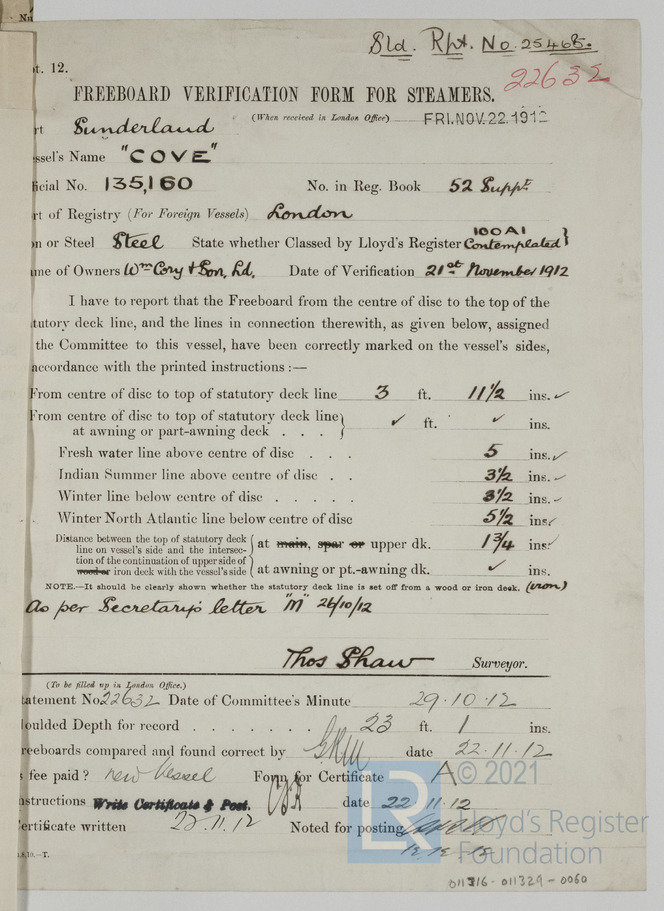 Sld. Rpt. No. 25468.
pt. 12.
22632
FREEBOARD VERIFICATION FORM FOR STEAMERS.
(When received in London Office) FRI. NOV. 22. 1912
rt Sunderland
ssel's Name "COVE"
ficial No. 135,160 No. in Reg. Book 52 Suppt
rt of Registry (For Foreign Vessels) London
on or Steel Steel State whether Classed by Lloyd's Register 100A1 Contemplated
me of Owners Wm Cory & Son, Ld. Date of Verification 21st November 1912
I have to report that the Freeboard from the centre of disc to the top of the
tutory deck line, and the lines in connection therewith, as given below, assigned
the Committee to this vessel, have been correctly marked on the vessel's sides,
accordance with the printed instructions :—
From centre of disc to top of statutory deck line 3 ft. 11 1/2 ins. ✓
From centre of disc to top of statutory deck line
at awning or part-awning deck . . . ✓ ft. ✓ ins.
Fresh water line above centre of disc . . . 5 ins. ✓
Indian Summer line above centre of disc . . 3 1/2 ins. ✓
Winter line below centre of disc . . . . . 3 1/2 ins. ✓
Winter North Atlantic line below centre of disc 5 1/2 ins. ✓
Distance between the top of statutory deck
line on vessel's side and the intersec-
tion of the continuation of upper side of
wood or iron deck with the vessel's side
at main, spar or upper dk. 1 3/4 ins. ✓
at awning or pt.-awning dk. ✓ ins.
NOTE.—It should be clearly shown whether the statutory deck line is set off from a wood or iron deck. (iron)
As per Secretary's letter "M" 26/10/12
Thos Shaw Surveyor.
(To be filled up in London Office.)
tatement No 22632 Date of Committee's Minute 29.10.12
oulded Depth for record . . . . . . . 23 ft. 1 ins.
reeboards compared and found correct by date 22.11.12
s fee paid? new vessel Form for Certificate A
nstructions Write Certificate & Post. date 22.11.12
ertificate written 22.11.12 Noted for posting
12.12.12
1.8.10.—T.
© 2021
LR
Lloyd's Register
Foundation
011316-011329-0060